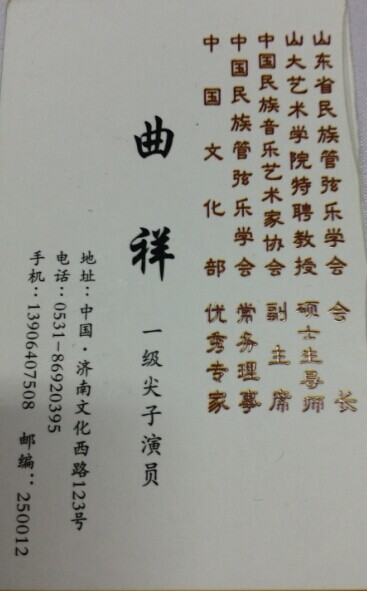 山东省民族管弦乐学会 会长
山大艺术学院特聘教授 硕士生导师
中国民族音乐艺术家协会 副主席
中国民族管弦乐学会 常务理事
中国文化部 优秀专家
曲祥 一级尖子演员
地址：中国·济南文化西路123号
电话：0531-86920395
手机：13906407508 邮编：250012